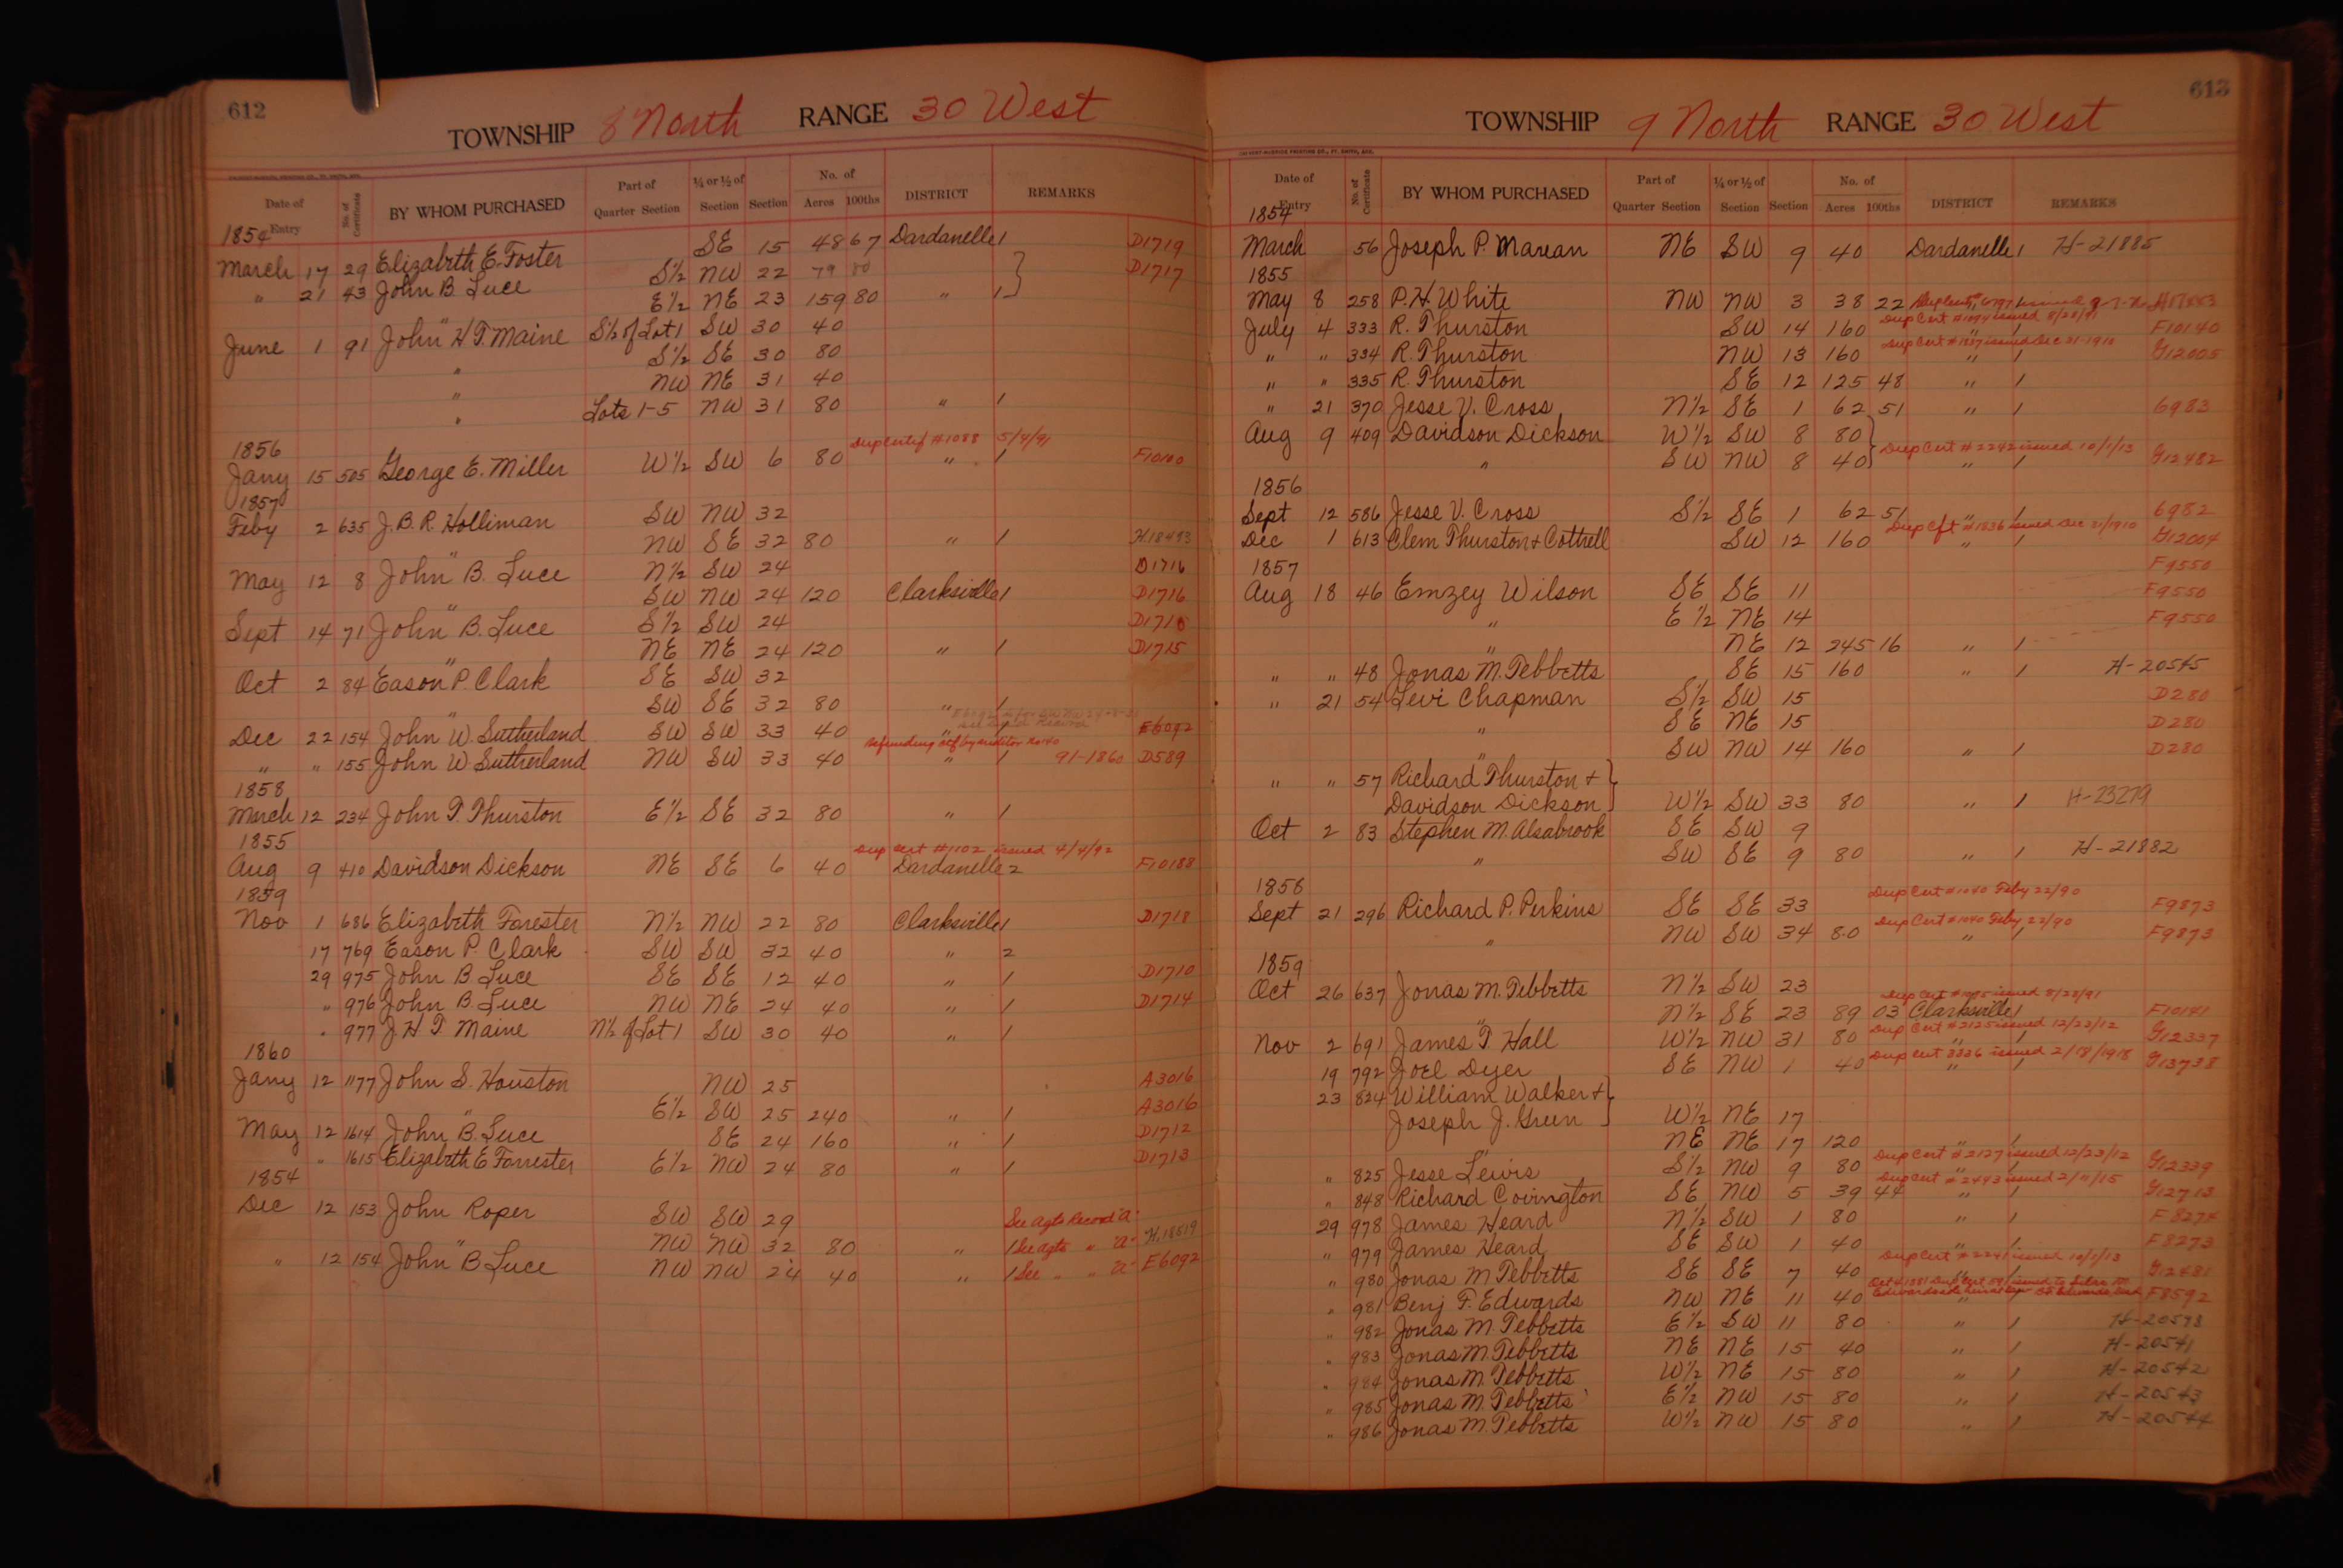 612
TOWNSHIP 8 North RANGE 30 West
Date of Entry No. of Certificate BY WHOM PURCHASED Part of Quarter Section ¼ or ½ of Section Section No. of Acres 100ths DISTRICT REMARKS
1854
March 17 29 Elizabeth E. Foster SE 15 48 67 Dardanelle 1 D1719
" 21 43 John B. Luce S½ NW 22 79 80 D1717
" E½ NE 23 159 80 " 1
June 1 91 John H T. Maine S½ of Lot 1 SW 30 40
" S½ SE 30 80
" NW NE 31 40
" Lots 1-5 NW 31 80 " 1
1856 Dup Certif #1088 5/4/91
Jany 15 505 George E. Miller W½ SW 6 80 " 1 F10100
1857
Feby 2 635 J. B. R. Holliman SW NW 32
" NW SE 32 80 " 1 H18493
May 12 8 John B. Luce N½ SW 24 D1716
" SW NW 24 120 Clarksville 1 D1716
Sept 14 71 John B. Luce S½ SW 24 D1715
" NE NE 24 120 " 1 D1715
Oct 2 84 Eason P. Clark SE SW 32
" SW SE 32 80 " 1
Dec 22 154 John W. Sutherland SW SW 33 40 " 1 E6092
Refunding ctf by auditor No 40
" " 155 John W. Sutherland NW SW 33 40 " 1 91-1860 D589
1858
March 12 234 John T. Thurston E½ SE 32 80 " 1
1855 Dup Cert #1102 issued 4/4/92
Aug 9 410 Davidson Dickson NE SE 6 40 Dardanelle 2 F10188
1859
Nov 1 686 Elizabeth Forester N½ NW 22 80 Clarksville 1 D1718
17 769 Eason P. Clark SW SW 32 40 " 2
29 975 John B. Luce SE SE 12 40 " 1 D1710
" 976 John B. Luce NW NE 24 40 " 1 D1714
" 977 J H T Maine N½ of Lot 1 SW 30 40 " 1
1860
Jany 12 1177 John S. Houston NW 25 A3016
" E½ SW 25 240 " 1 A3016
May 12 1614 John B. Luce SE 24 160 " 1 D1712
" 1615 Elizabeth E Forrester E½ NW 24 80 " 1 D1713
1854
Dec 12 153 John Roper SW SW 29 See agts Record "A"
" NW NW 32 80 " 1 See agts " "A" H.18819
" 12 154 John B Luce NW NW 24 40 " 1 See " " "A" E6092
613
TOWNSHIP 9 North RANGE 30 West
CALVERT-McBRIDE PRINTING CO., FT. SMITH, ARK.
Date of Entry No. of Certificate BY WHOM PURCHASED Part of Quarter Section ¼ or ½ of Section Section No. of Acres 100ths DISTRICT REMARKS
1854
March 56 Joseph P. Marean NE SW 9 40 Dardanelle 1 H-21885
1855
May 8 258 P. H. White NW NW 3 38 22
Dup Cert #1094 issued 8/28/91
July 4 333 R. Thurston SW 14 160 " 1 F10140
Dup Cert #1837 issued Dec 21-1910
" " 334 R. Thurston NW 13 160 " 1 G12005
" " 335 R. Thurston SE 12 125 48 " 1
" 21 370 Jesse V. Cross N½ SE 1 62 51 " 1 6983
Aug 9 409 Davidson Dickson W½ SW 8 80
Dup Cert #2242 issued 10/1/13
" SW NW 8 40 " 1 G12482
1856
Sept 12 586 Jesse V. Cross S½ SE 1 62 51 " 1 6982
Dup Cft #1836 issued Dec 21/1910
Dec 1 613 Clem Thurston & Cottrell SW 12 160 " 1 G12004
1857 F9550
Aug 18 46 Emzey Wilson SE SE 11 F9550
" E½ NE 14 F9550
" NE 12 245 16 " 1
" " 48 Jonas M. Tebbetts SE 15 160 " 1 H-20545
" 21 54 Levi Chapman S½ SW 15 D280
" SE NE 15 D280
" SW NW 14 160 " 1 D280
" " 57 Richard Thurston &
Davidson Dickson W½ SW 33 80 " 1 H-23279
Oct 2 83 Stephen M. Alsabrook SE SW 9
" SW SE 9 80 " 1 H-21882
1858 Dup Cert #1040 Feby 22/90
Sept 21 296 Richard P. Perkins SE SE 33 F9873
Dup Cert #1040 Feby 22/90
" NW SW 34 80 " 1 F9873
1859
Oct 26 637 Jonas M. Tebbetts N½ SW 23
Dup Cert #1095 issued 8/28/91
" N½ SE 23 89 03 Clarksville 1 F10141
Dup Cert #2125 issued 12/23/12
Nov 2 691 James T. Hall W½ NW 31 80 " 1 G12337
Dup Cert 3336 issued 2/18/1918
19 792 Joel Dyer SE NW 1 40 " 1 G13738
23 824 William Walker &
Joseph J. Green W½ NE 17
" NE NE 17 120 " 1
Dup Cert #2127 issued 12/23/12
" 825 Jesse Lewis S½ NW 9 80 " 1 G12339
Dup Cert #2443 issued 2/11/15
" 848 Richard Covington SE NW 5 39 44 " 1 G12713
29 978 James Heard N½ SW 1 80 " 1 F8274
" 979 James Heard SE SW 1 40 " 1 F8273
Dup Cert #2241 issued 10/1/13
" 980 Jonas M Tebbetts SE SE 7 40 " 1 G12481
" 981 Benj F. Edwards NW NE 11 40 " 1 F8592
" 982 Jonas M. Tebbetts E½ SW 11 80 " 1 H-20578
" 983 Jonas M. Tebbetts NE NE 15 40 " 1 H-20541
" 984 Jonas M. Tebbetts W½ NE 15 80 " 1 H-20542
" 985 Jonas M. Tebbetts E½ NW 15 80 " 1 H-20543
" 986 Jonas M. Tebbetts W½ NW 15 80 " 1 H-20544